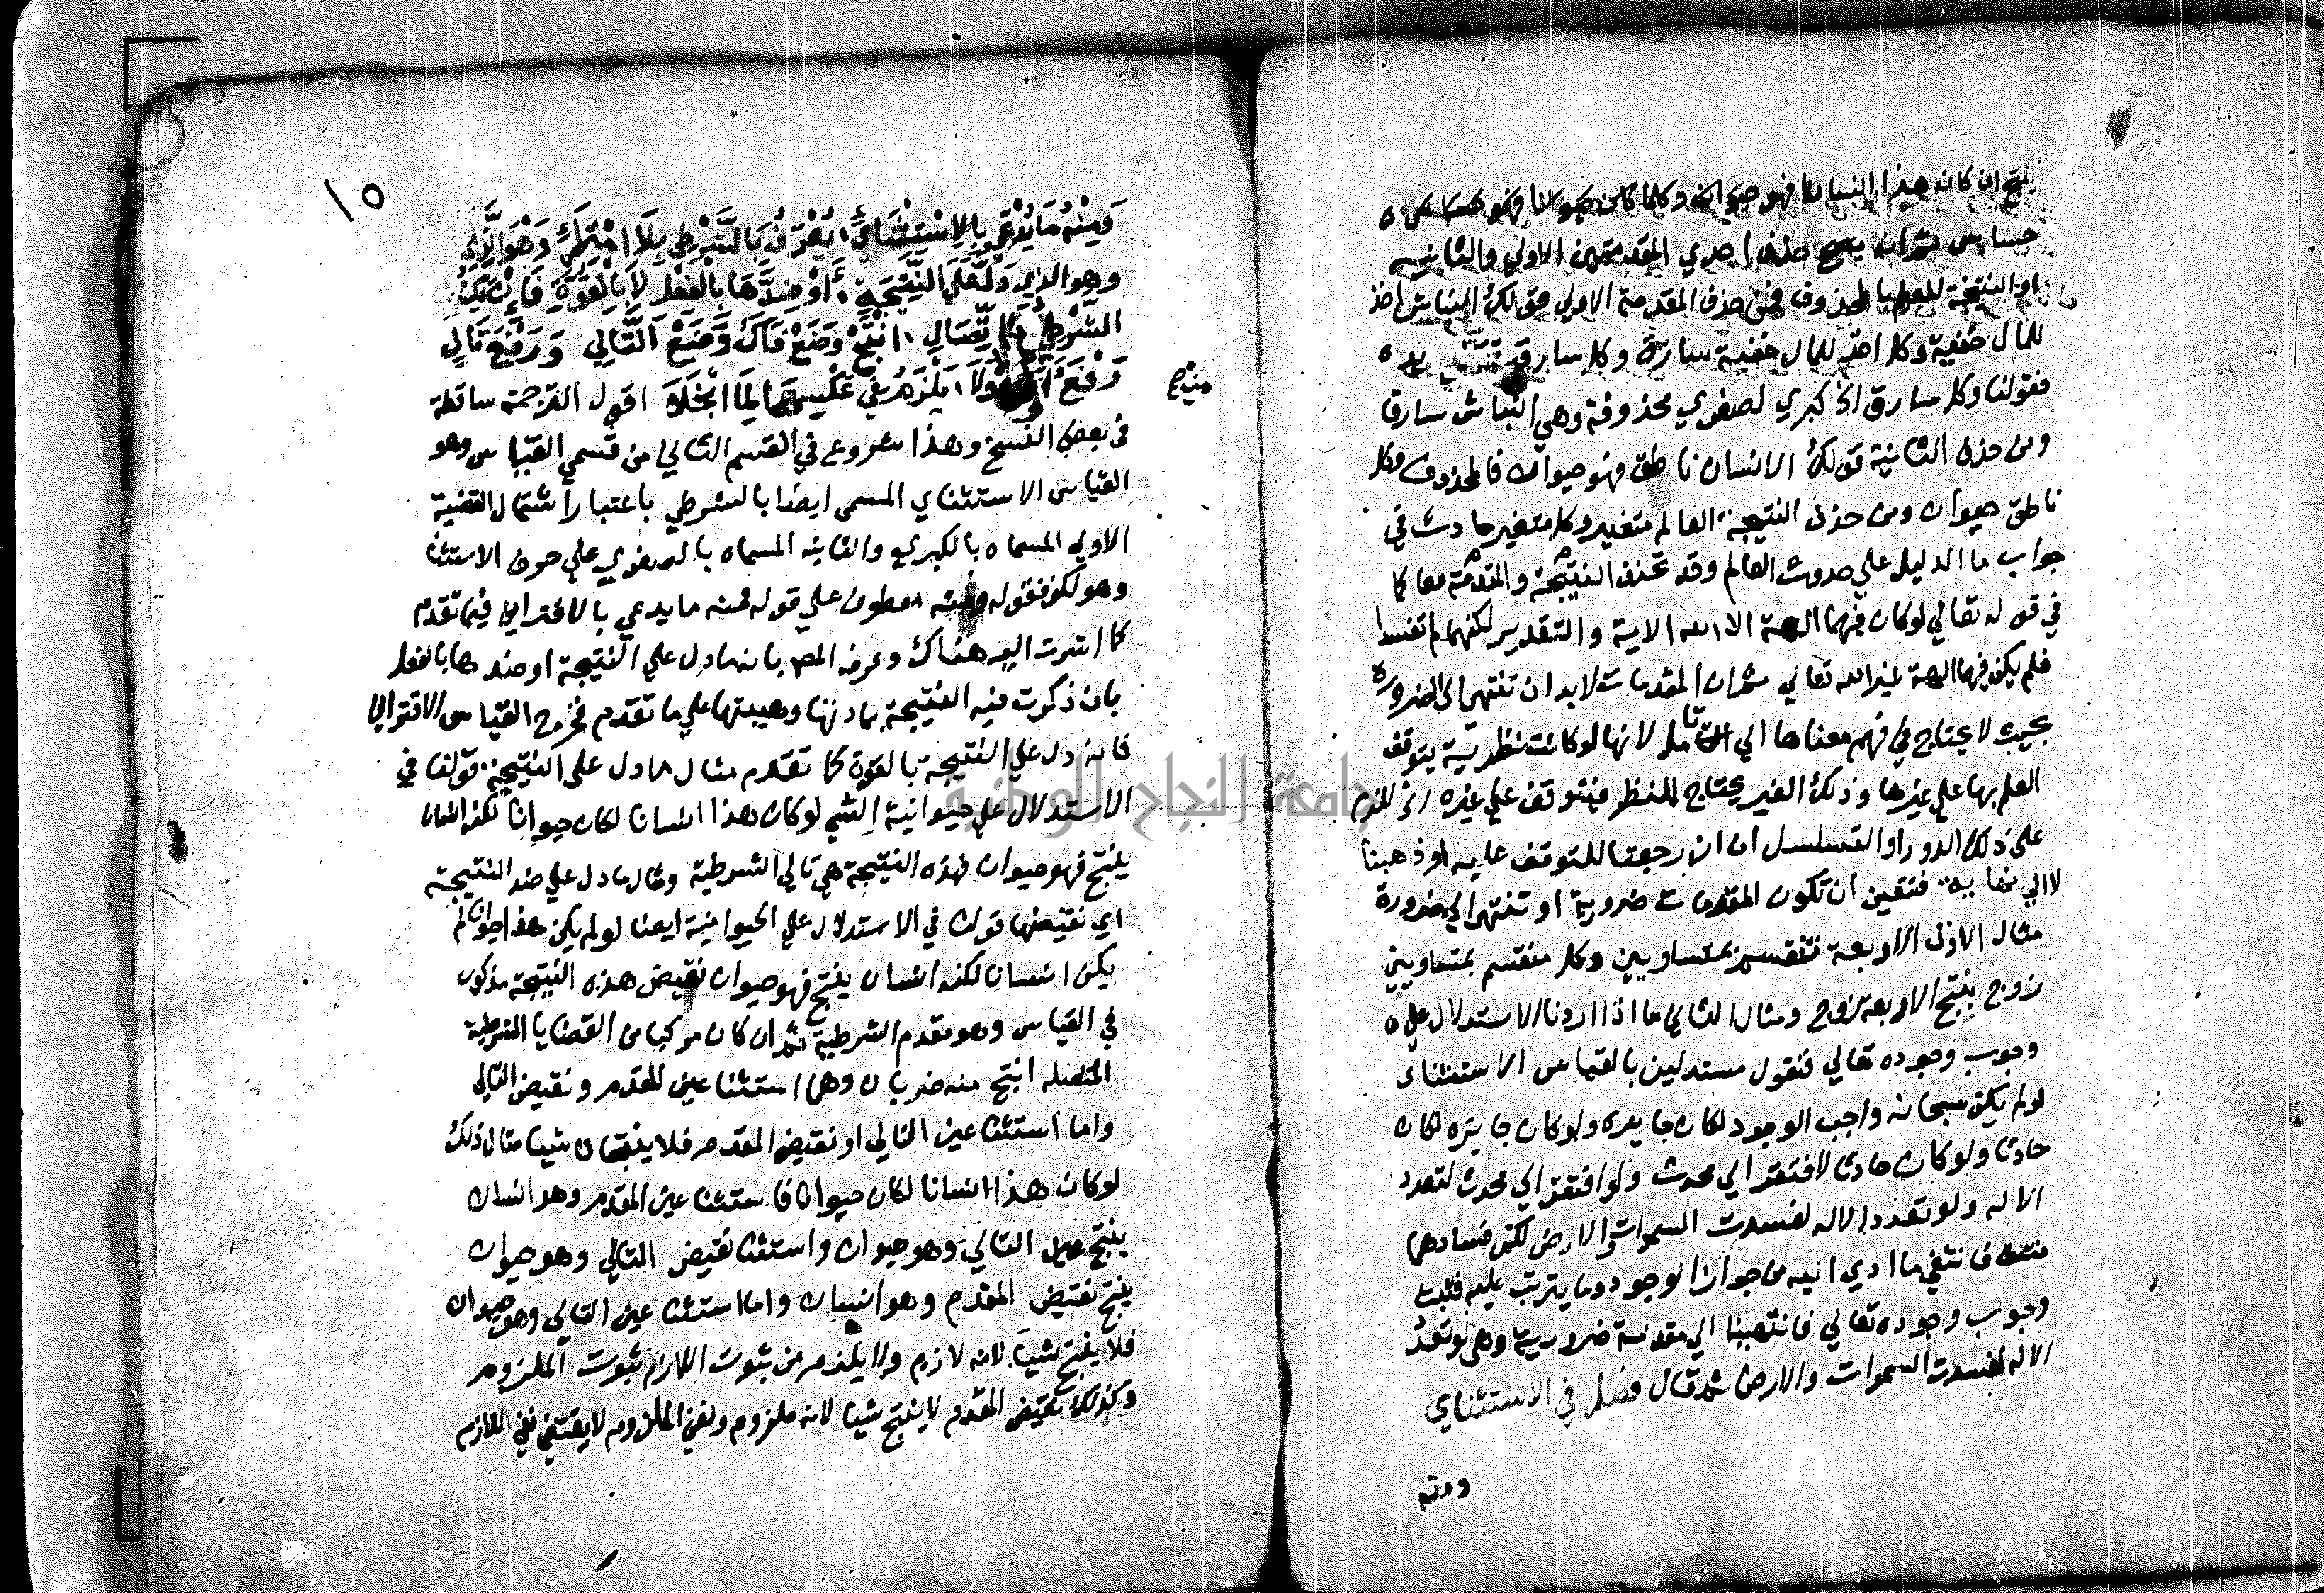 ينتج ان كان هذا انسانا فهو حيوان وكلما كان حيوانا فهو حساس ه
حساس ثم انه يصح حذف احدي المقدمتين الاولي والثانيه
او النتيجة للعلم بالمحذوف فمن حذف المقدمة الاولي قولك النباش اخذ
للمال خفية وكل اخذ للمال خفية سارق وكل سارق تقطع يده
فقولنا وكل سارق الخ كبري لصغري محذوفة وهي النباش سارق
ومن حذف الثانية قولك الانسان ناطق فهو حيوان فالمحذوف وكل
ناطق حيوان ومن حذف النتيجة العالم متغير وكل متغير حادث في
جواب ما الدليل علي حدوث العالم وقد تحذف النتيجة والمقدمة معا كما
في قوله تعالي لو كان فيهما الهة الا الله الاية والتقدير لكنهما لم تفسدا
فلم يكن فيهما الهة غير الله تعالي ثم ان المقدمات لا بد ان تنتهي الي الضرورة
بحيث لا يحتاج في فهم معناها الي التامل لانها لو كانت نظرية يتوقف
العلم بها علي غيرها وذلك الغير يحتاج للنظر فيتوقف علي غيره الخ للزم
على ذلك الدور او التسلسل ان رجعنا للمتوقف عليه او ذهبنا
لا الي نهاية فتعين ان تكون المقدمات ضرورية او تنتهي الي ضرورة
مثال الاول الاربعة تنقسم بمتساويين وكل منقسم بمتساويين
زوج ينتج الاربعة زوج ومثال الثاني ما اذا اردنا الاستدلال علي ه
وجوب وجوده تعالي فنقول مستدلين بالقياس الاستثنائ
لو لم يكن سبحانه واجب الوجود لكان جايزه ولو كان جايزه لكان
حادثا ولو كان حادثا لافتقر الي محدث ولو افتقر الي محدث لتعدد
الاله ولو تعدد الاله لفسدت السموات والارض لكن فسادهما
منتف فانتفي ما ادي اليه من جواز الوجود وما يترتب عليه فثبت
وجوب وجوده تعالي فانتهينا الي مقدمة ضرورية وهي لو تعدد
الاله لفسدت السموات والارض ثم قال فصل في الاستثناي
ومنه
وَمِنْهُ مَا يُدْعَى بِالِاسْتِثْنَائِي يُعْرَفُ بِالشَّرْطِي بِلَا امْتِرَاءِ وَهُوَ الَّذِي
وهو الذي دَلَّ عَلَى النَّتِيْجَةِ أَوْ ضِدِّهَا بِالفِعْلِ لَا بِالقُوَّةِ فَإِنْ يَكُ
الشَّرْطِيُّ ذَا اتِّصَالِ انْتَجَ وَضْعُ ذَاكَ وَضْعَ التَّالِي وَرَفْعُ تَالٍ
رَفْعَ أَوَّلٍ وَلَا يَلْزَمُ فِي عَكْسِهِمَا لِمَا انْجَلَا اقول الترجمة ساقطة
منتج
في بعض النسخ وهذا شروع في القسم الثاني من قسمي القياس وهو
القياس الاستثناي المسمى ايضا بالشرطي باعتبار اشتمال القضية
الاولي المسماه بالكبري والثانيه المسماه بالصغري علي حرف الاستثنا
وهو لكن فقوله ومنه معطوف علي قوله فمنه ما يدعي بالاقتراني فيما تقدم
كما اشرت اليه هناك وعرفه المص بانه ما دل علي النتيجة او ضدها بالفعل
بان ذكرت فيه النتيجة بمادتها وهيئتها علي ما تقدم فخرج القياس الاقتراني
فانه دل علي النتيجة بالقوة كما تقدم مثال ما دل على النتيجة قولنا في
الاستدلال علي حيوانية الشي لو كان هذا انسانا لكان حيوانا لكنه انسان
ينتج فهو حيوان فهذه النتيجة هي تالي الشرطية ومثال ما دل علي ضد النتيجة
اي نقيضها قولك في الاستدلال علي الحيوانية ايضا لو لم يكن هذا حيوان لم
يكن انسانا لكنه انسان ينتج فهو حيوان نقيض هذه النتيجة مذكور
في القياس وهو مقدم الشرطية ثم ان كان مركبا من القضايا الشرطية
المتصله انتج منه ضربان وهما استثنا عين المقدم ونقيض التالي
واما استثنا عين التالي او نقيض المقدم فلا ينتجان شيا مثال ذلك
لو كان هذا انسانا لكان حيوان فاستثنا عين المقدم وهو انسان
ينتج عين التالي وهو حيوان واستثنا نقيض التالي وهو حيوان
ينتج نقيض المقدم وهو انسان واما استثنا عين التالي وهو حيوان
فلا ينتج شيا لانه لازم ولا يلزم من ثبوت اللازم ثبوت الملزوم
وكذلك نقيض المقدم لا ينتج شيا لانه ملزوم ونفي الملزوم لا يقتضي نفي اللازم
١٥
جامعة النجاح الوطنية